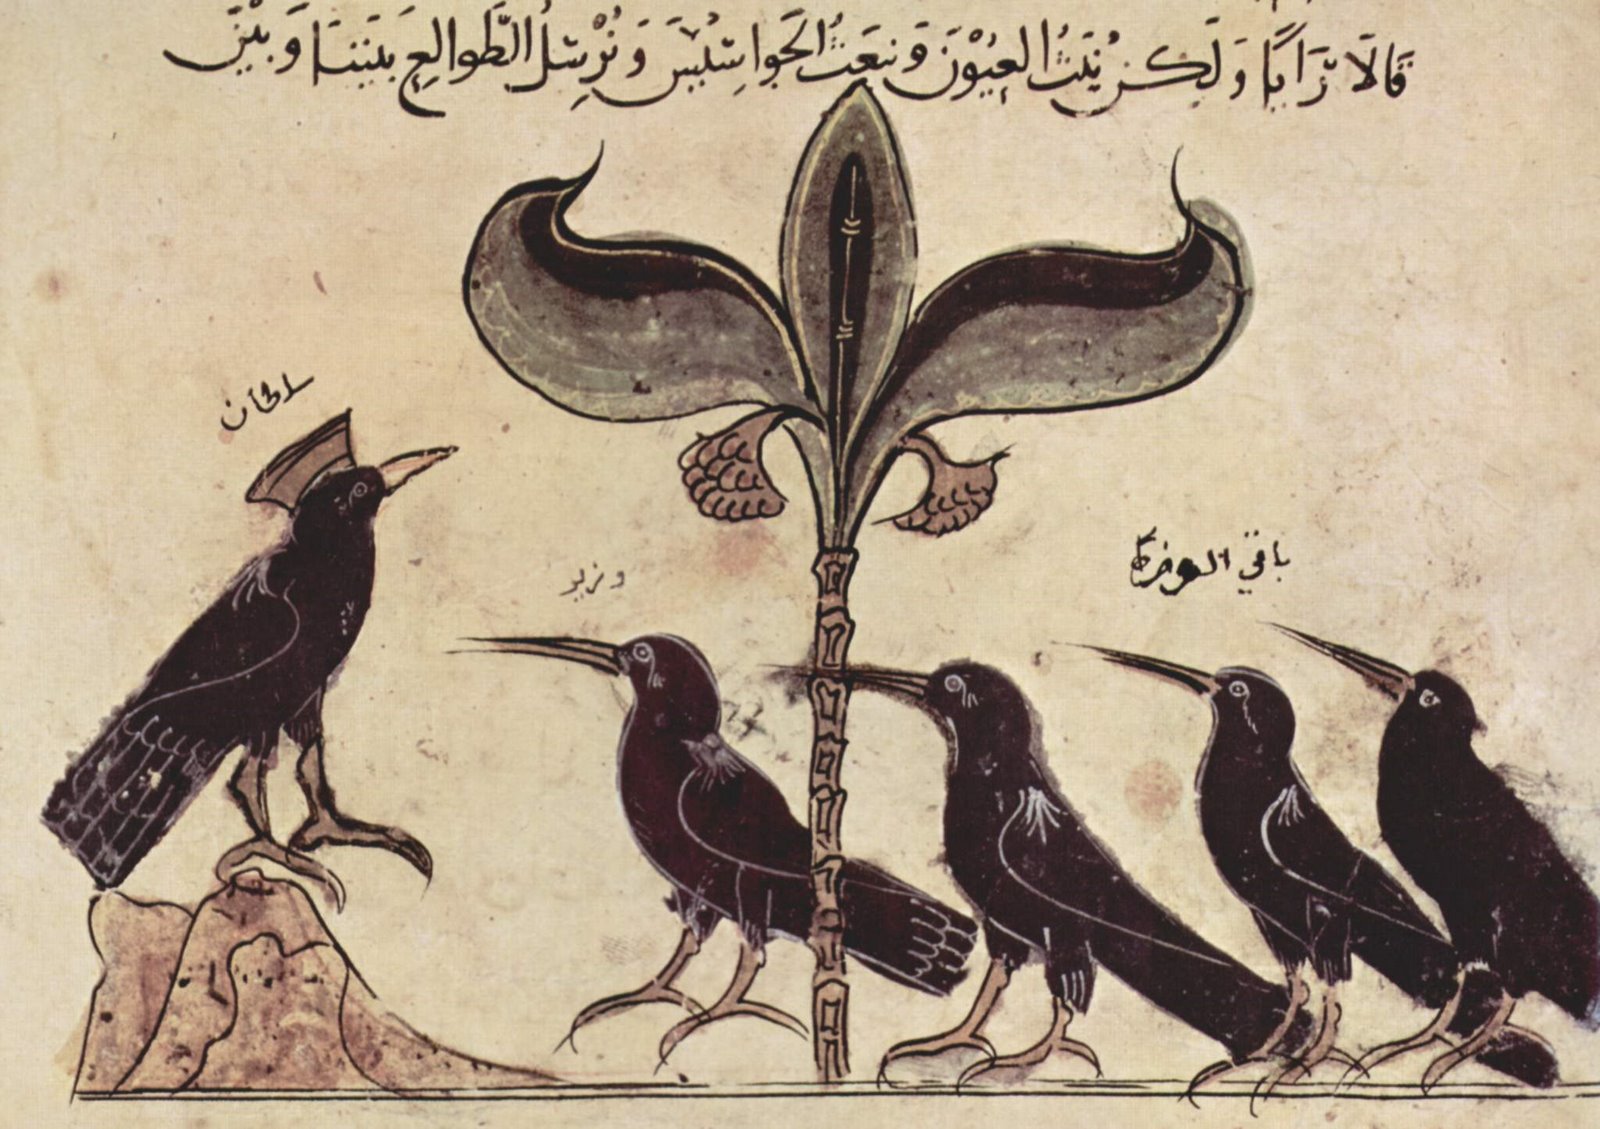 وَلَكِن نَبُثُّ العُيُوْنَ وَنبعَثُ الجَواسِيْسَ وَنُرْسِلُ الطَّوالِعِ بَيننَا وَبَيْنَ
سلطان
وزير
باقي الوزرا